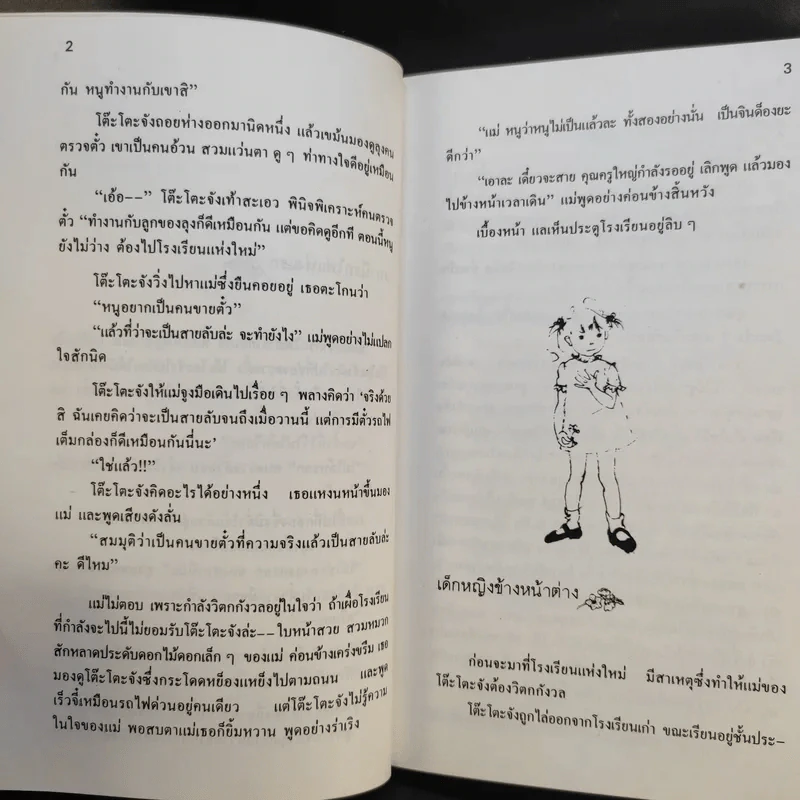 2
กัน หนูทำงานกับเขาสิ”
โต๊ะโตะจังถอยห่างออกมานิดหนึ่ง แล้วเขม้นมองดูลุงคน
ตรวจตั๋ว เขาเป็นคนอ้วน สวมแว่นตา ดู ๆ ท่าทางใจดีอยู่เหมือน
กัน
“เอ้อ--” โต๊ะโตะจังเท้าสะเอว พินิจพิเคราะห์คนตรวจ
ตั๋ว “ทำงานกับลูกของลุงก็ดีเหมือนกัน แต่ขอคิดดูอีกที ตอนนี้หนู
ยังไม่ว่าง ต้องไปโรงเรียนแห่งใหม่”
โต๊ะโตะจังวิ่งไปหาแม่ซึ่งยืนคอยอยู่ เธอตะโกนว่า
“หนูอยากเป็นคนขายตั๋ว”
“แล้วที่ว่าจะเป็นสายลับล่ะ จะทำยังไง” แม่พูดอย่างไม่แปลก
ใจสักนิด
โต๊ะโตะจังให้แม่จูงมือเดินไปเรื่อย ๆ พลางคิดว่า ‘จริงด้วย
สิ ฉันเคยคิดว่าจะเป็นสายลับจนถึงเมื่อวานนี้ แต่การมีตั๋วรถไฟ
เต็มกล่องก็ดีเหมือนกันนี่นะ’
“ใช่แล้ว!!”
โต๊ะโตะจังคิดอะไรได้อย่างหนึ่ง เธอแหงนหน้าขึ้นมอง
แม่ และพูดเสียงดังลั่น
“สมมุติว่าเป็นคนขายตั๋วที่ความจริงแล้วเป็นสายลับล่ะ
คะ ดีไหม”
แม่ไม่ตอบ เพราะกำลังวิตกกังวลอยู่ในใจว่า ถ้าเผื่อโรงเรียน
ที่กำลังจะไปนี้ไม่ยอมรับโต๊ะโตะจังล่ะ-- ใบหน้าสวย สวมหมวก
สักหลาดประดับดอกไม้ดอกเล็ก ๆ ของแม่ ค่อนข้างเคร่งขรึม เธอ
มองดูโต๊ะโตะจังซึ่งกระโดดหยีองแหย็งไปตามถนน และพูด
เร็วจี๋เหมือนรถไฟด่วนอยู่คนเดียว แต่โต๊ะโตะจังไม่รู้ความ
ในใจของแม่ พอสบตาแม่เธอก็ยิ้มหวาน พูดอย่างร่าเริง
3
“แม่ หนูว่าหนูไม่เป็นแล้วละ ทั้งสองอย่างนั่น เป็นจินด็องยะ
ดีกว่า”
“เอาละ เดี๋ยวจะสาย คุณครูใหญ่กำลังรออยู่ เลิกพูด แล้วมอง
ไปข้างหน้าเวลาเดิน” แม่พูดอย่างค่อนข้างสิ้นหวัง
เบื้องหน้า แลเห็นประตูโรงเรียนอยู่ลิบ ๆ
เด็กหญิงข้างหน้าต่าง
ก่อนจะมาที่โรงเรียนแห่งใหม่ มีสาเหตุซึ่งทำให้แม่ของ
โต๊ะโตะจังต้องวิตกกังวล
โต๊ะโตะจังถูกไล่ออกจากโรงเรียนเก่า ขณะเรียนอยู่ชั้นประ-